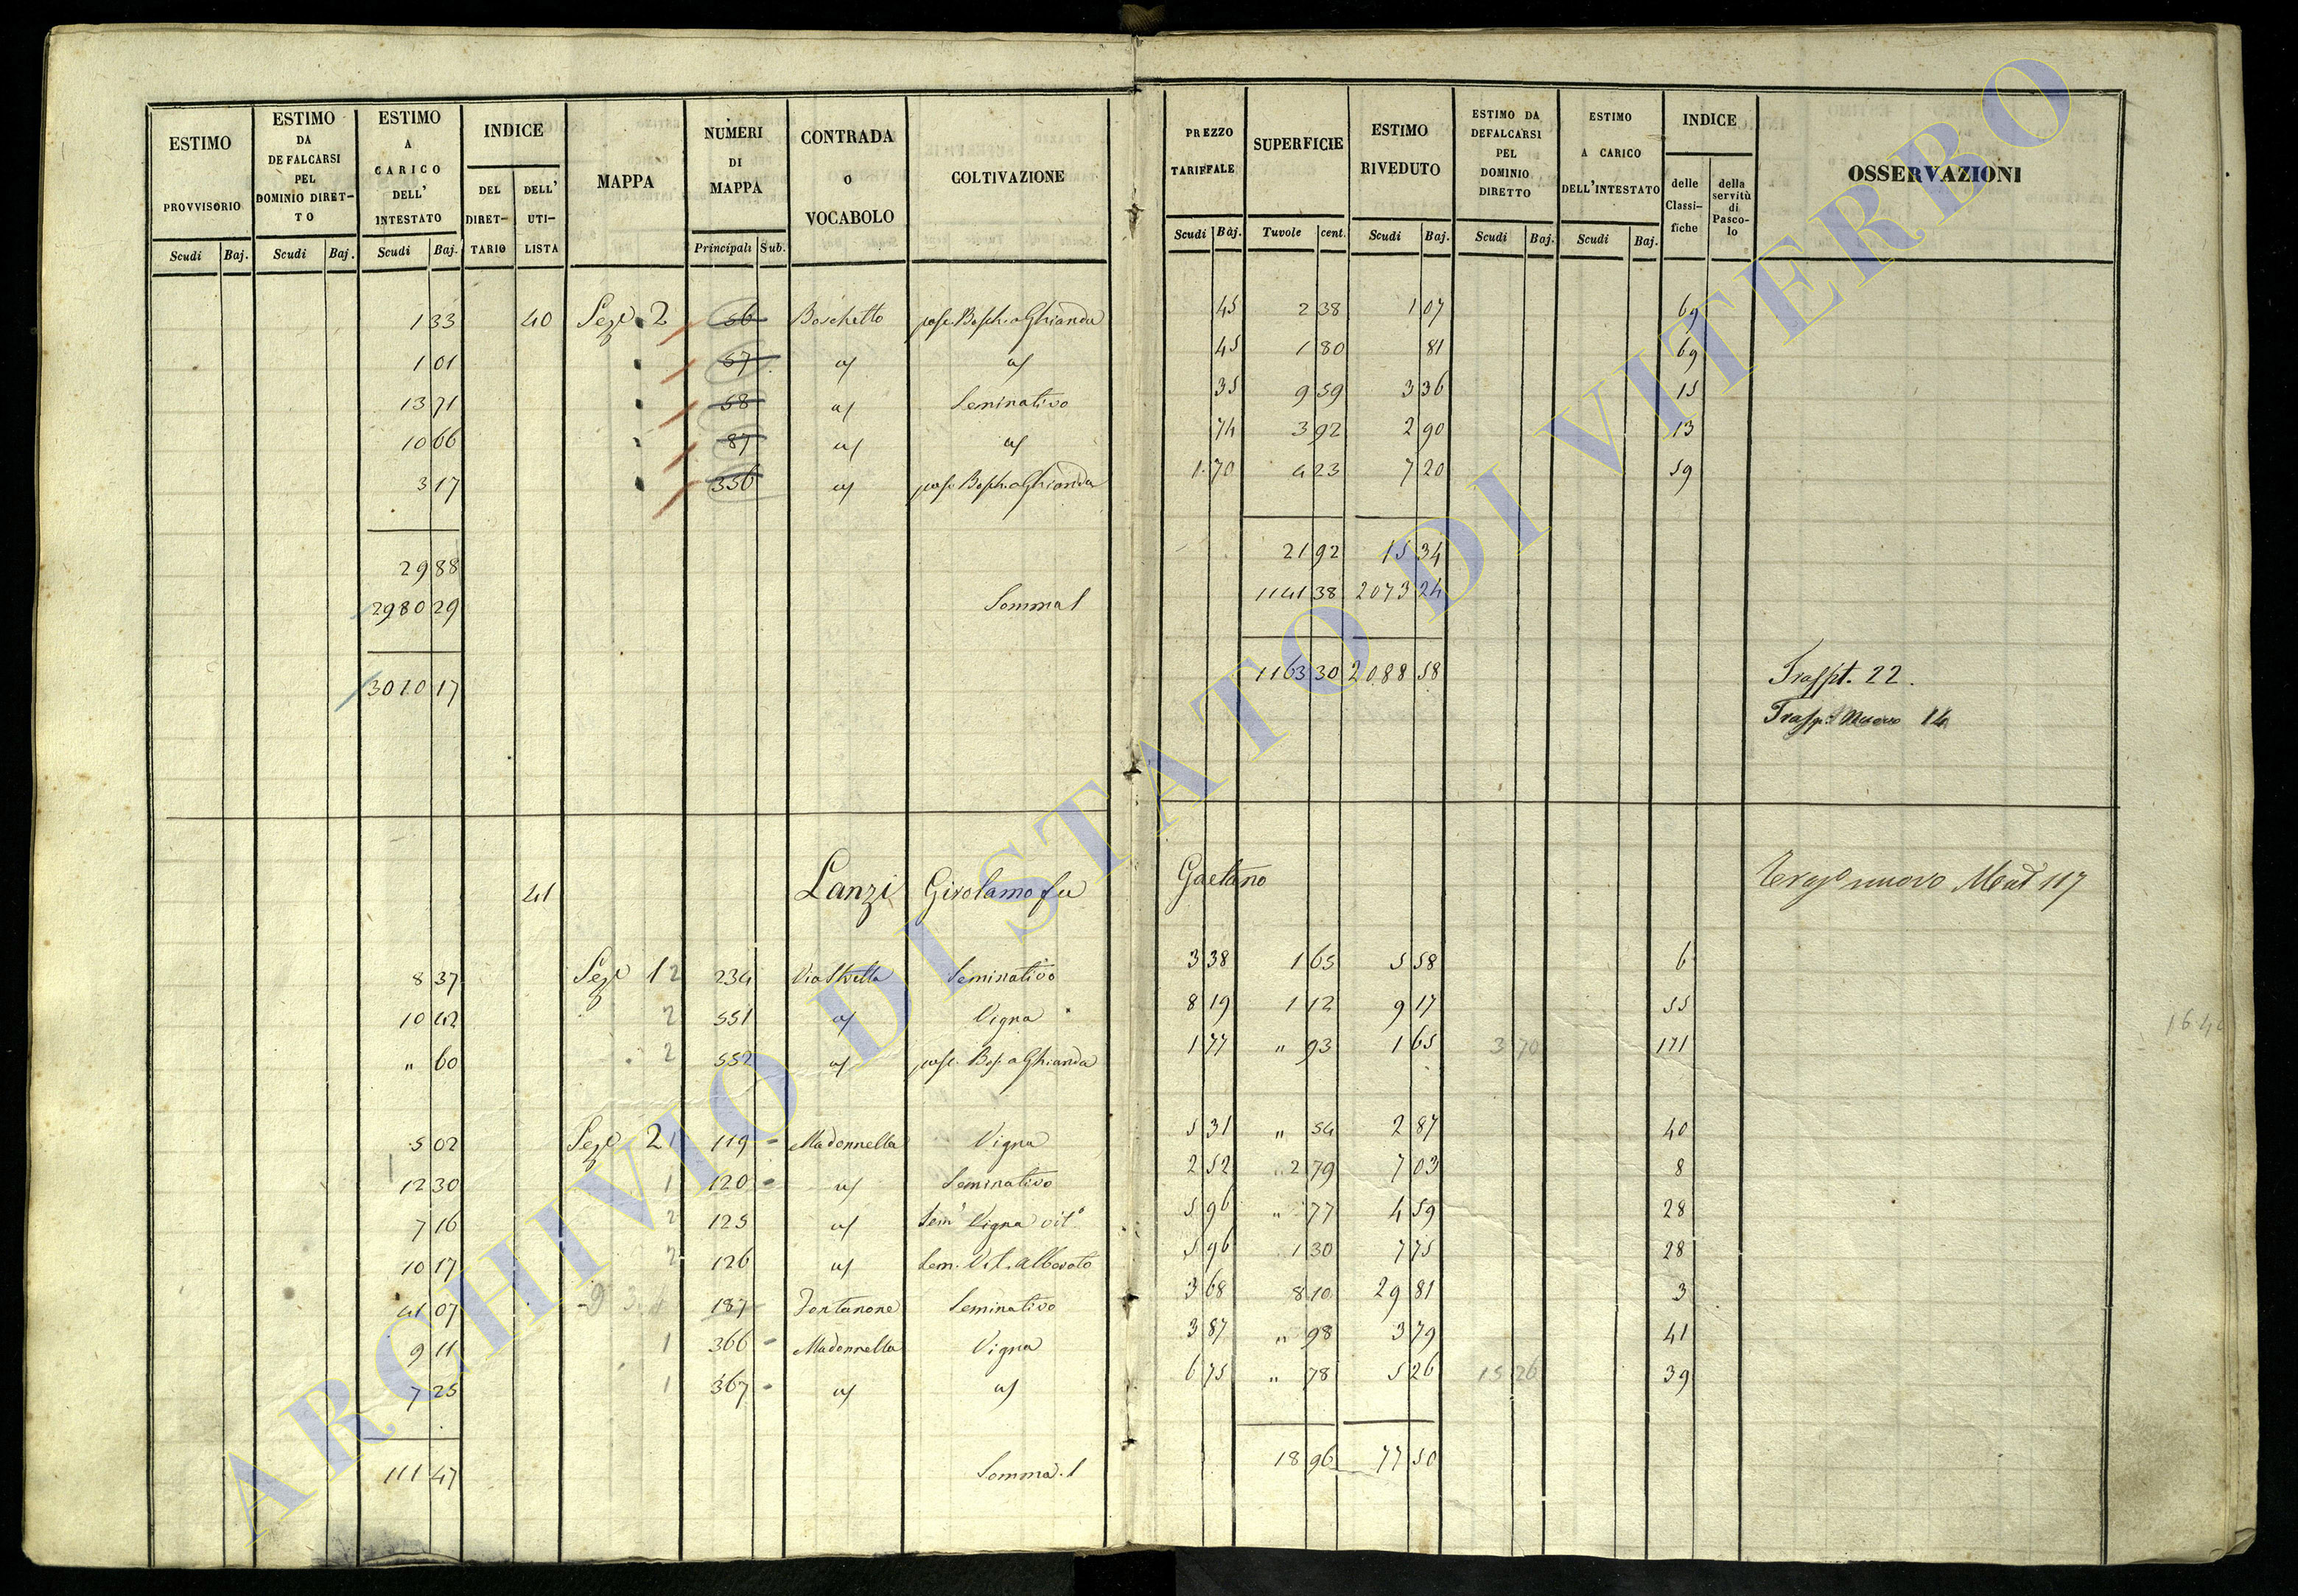 ESTIMO PROVVISORIO | ESTIMO DA DEFALCARSI PEL DOMINIO DIRETTO | ESTIMO A CARICO DELL' INTESTATO | INDICE DEL DIRETTARIO | DELL' UTILISTA | MAPPA | NUMERI DI MAPPA | CONTRADA O VOCABOLO | COLTIVAZIONE | PREZZO TARIFFALE | SUPERFICIE | ESTIMO RIVEDUTO | ESTIMO DA DEFALCARSI PEL DOMINIO DIRETTO | ESTIMO A CARICO DELL'INTESTATO | INDICE delle Classifiche | della servitù di Pascolo | OSSERVAZIONI
Scudi Baj. | Scudi Baj. | Scudi Baj. | Principali Sub. | Scudi Baj. | Tavole cent. | Scudi Baj. | Scudi Baj. | Scudi Baj.
1 33 40 Sez.e 2 56 Boschetto pasc. Bosch. a Ghianda 45 2 38 1 07 69
1 01 57 45 1 80 81 69
13 71 58 Seminativo 35 9 59 3 36 15
10 66 87 74 3 92 2 90 13
3 17 356 pasc. Bosch. a Ghianda 1 70 4 23 7 20 59
29 88 21 92 15 34
2980 29 Somma 1141 38 2073 24
3010 17 1163 30 2088 58 Traspt. 22.
14
41 Lanzi Girolamo fu Gaetano nuovo 117
8 37 Sez.e 1 2 234 Via Stretta Seminativo 3 38 1 65 5 58 6
10 42 2 551 Vigna 8 19 1 12 9 17 55
" 60 2 552 pasc. Bos. a Ghianda 1 77 " 93 1 65 3 70 171
5 02 Sez.e 2 1 119 Madonnella Vigna 5 31 " 54 2 87 40
12 30 1 120 Seminativo 2 52 2 79 7 03 8
7 16 2 125 Sem. Vigna vit.o 5 96 " 77 4 59 28
10 17 2 126 Sem. Vit. alberato 5 96 1 30 7 75 28
41 07 187 Fontanone Seminativo 3 68 8 10 29 81 3
9 11 1 366 Madonnella Vigna 3 87 " 98 3 79 41
7 25 1 367 6 75 " 78 5 26 15 26 39
111 47 Somma 18 96 77 50
ARCHIVIO DI STATO DI VITERBO